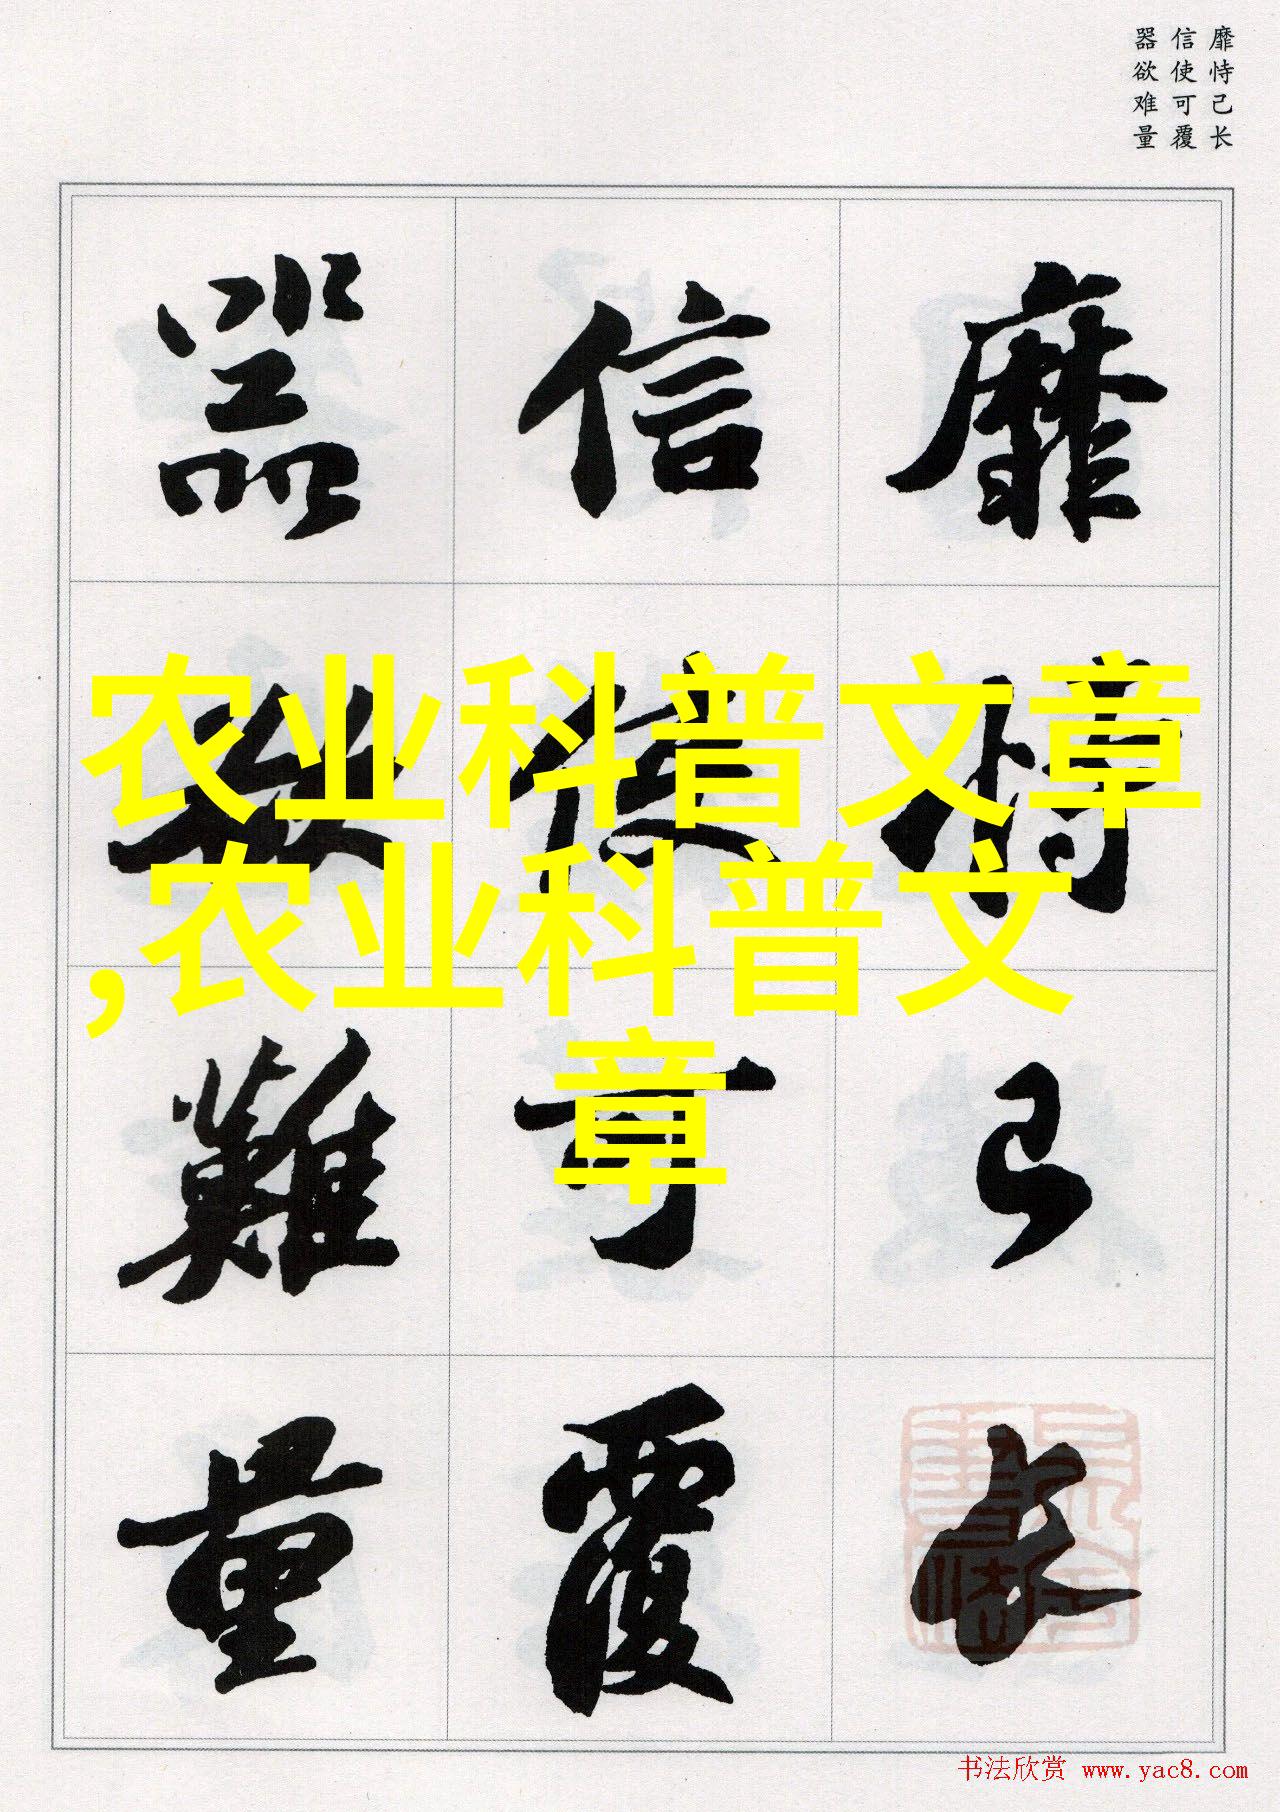 靡恃己长
信使可覆
器欲难量
靡恃己长
信使可覆
器欲難量
农业科普文章
,农业科普文
章
书法欣赏 www.yac8.com